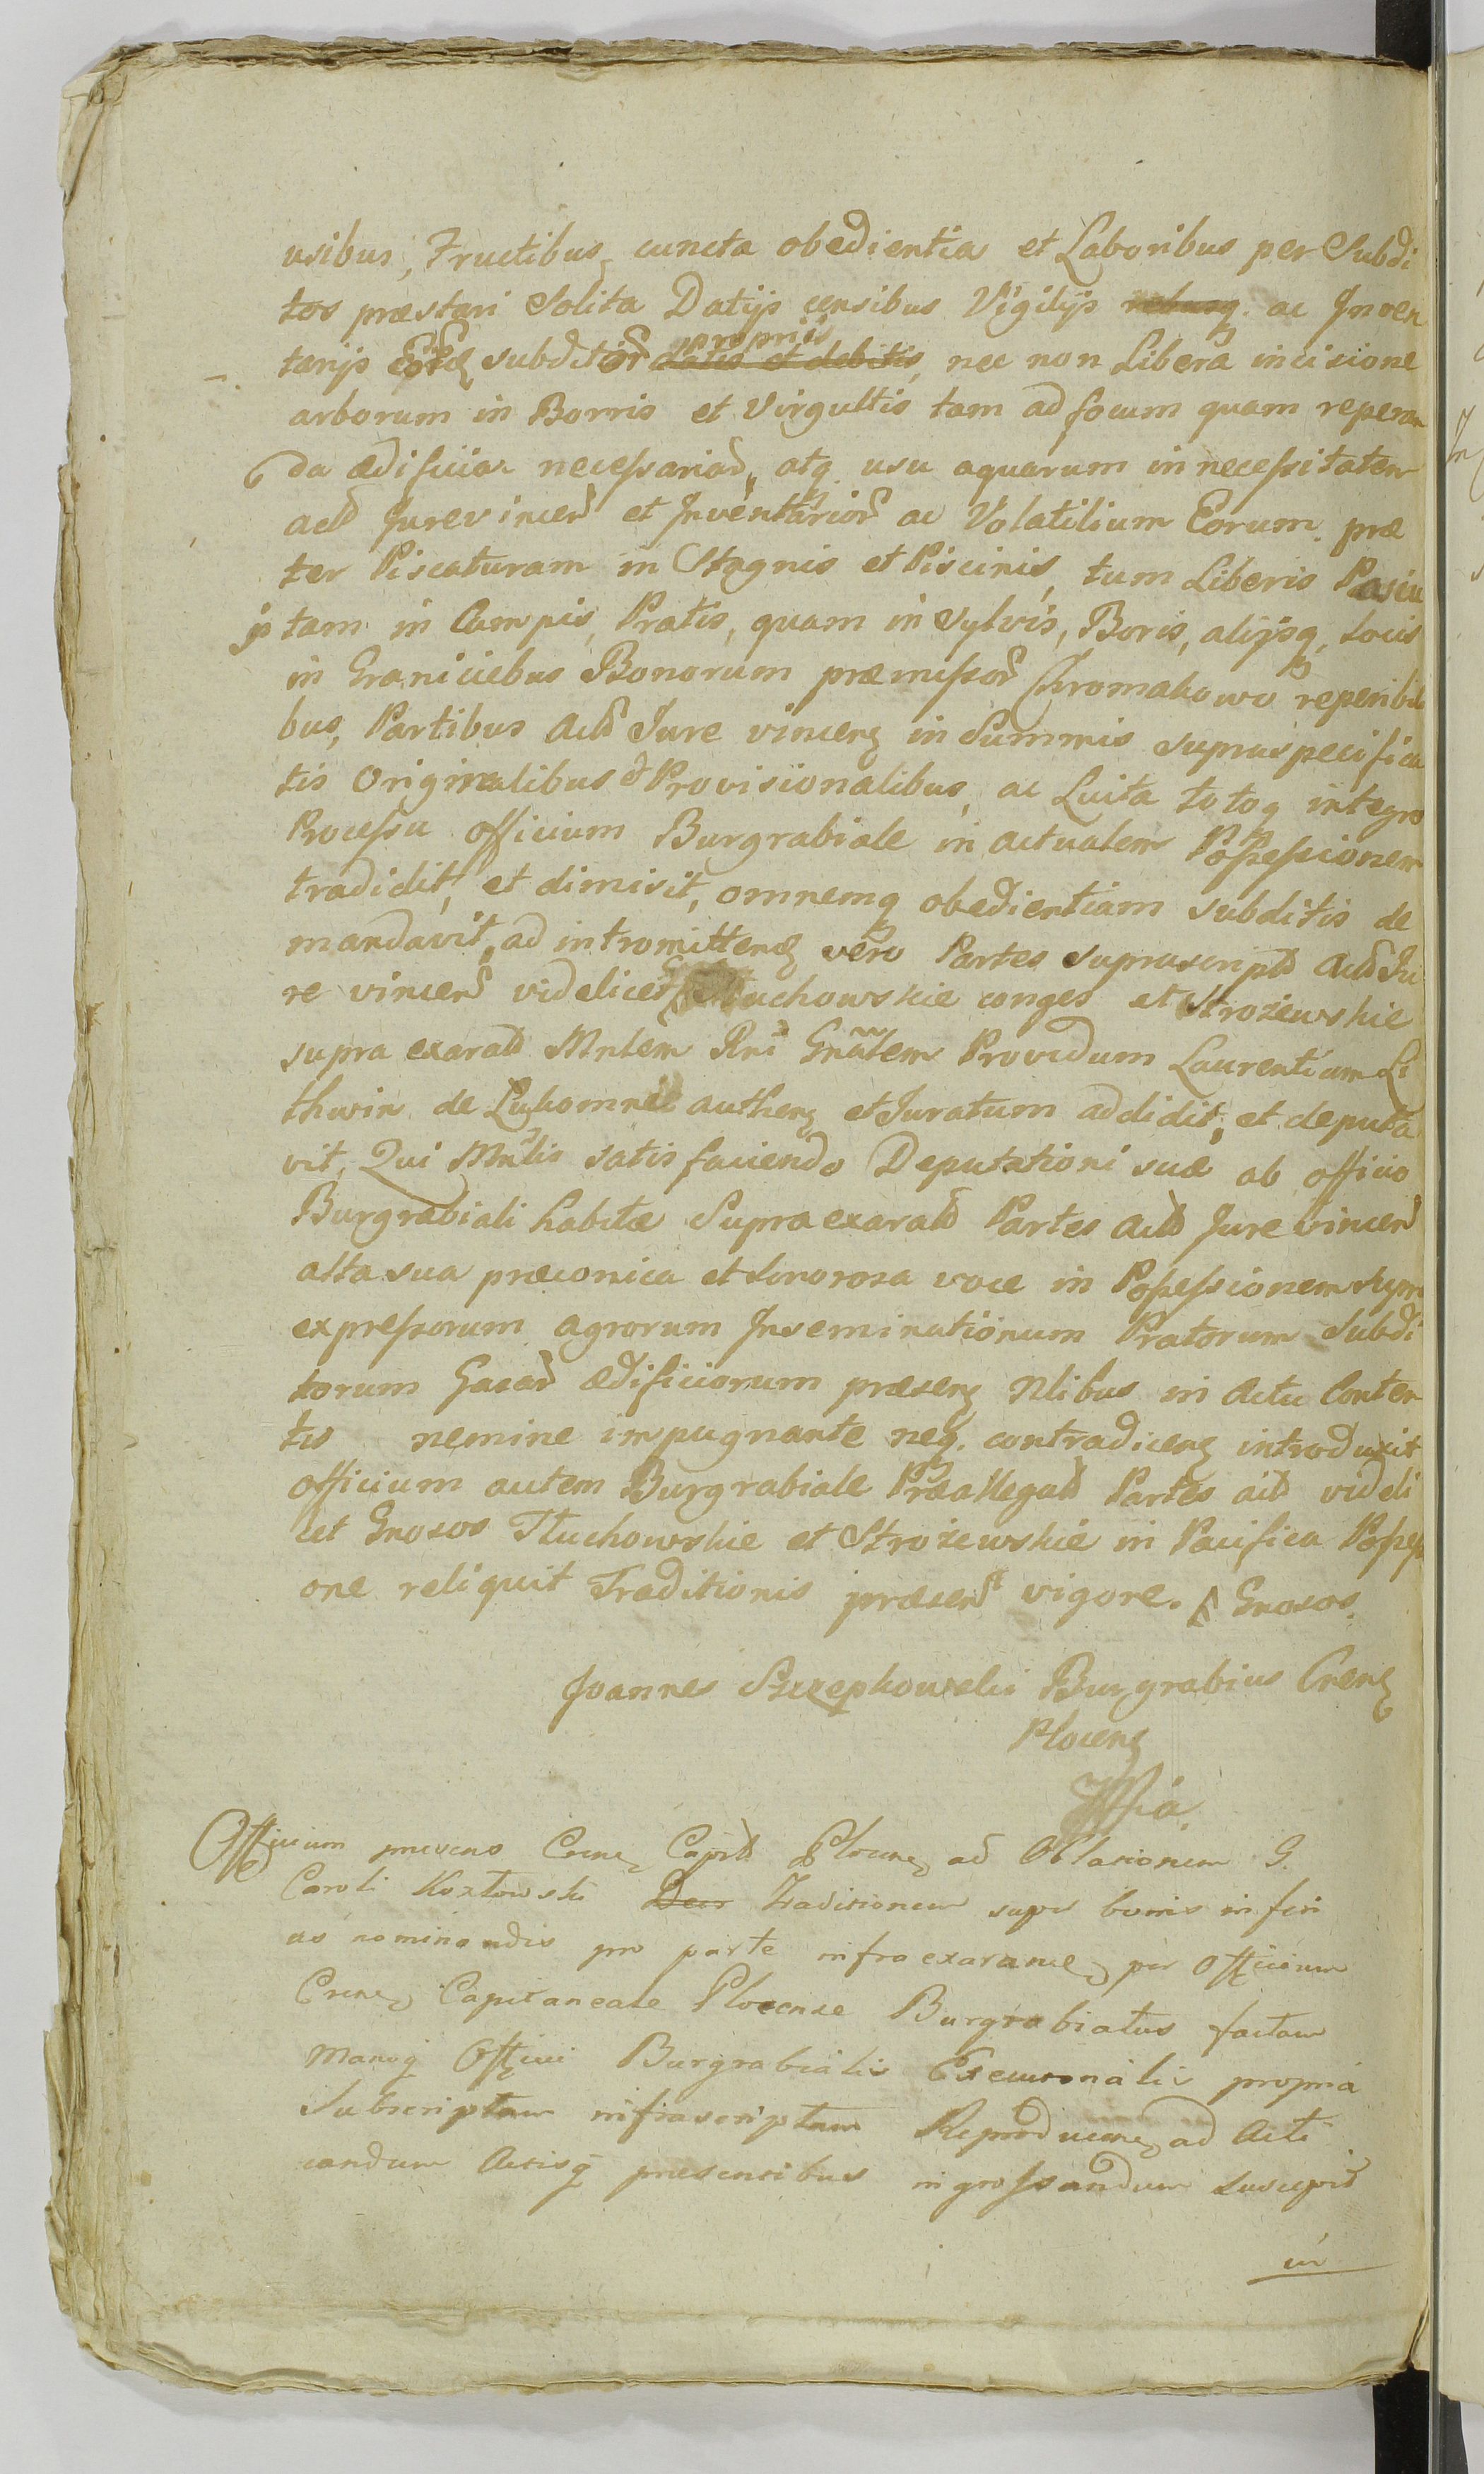 usibus, Fructibus, cuncta obedientia et Laboribus per Subdi
tos præstari Solita Datijs censibus Vigilijs rebusq. ac Inven
proprijs
tarijs subditor datis et debitis, nec non Libera incisione
arborum in Borris et Virgultis tam ad focum quam reperan
da ædificia necessariad, atq. usu aquarum in necessitatem
actð Jurevincenð et Inventarior ac Volatilium Eorum. præ
ter Piscaturam in Stagnis et Piscinis, tum Liberis Pascu
js tam in Campis, Pratis, quam in Sylvis, Boris, alijsq, Locis
in Graniciebus Bonorum præmissor Chromakowo reperibili
bus, Partibus Actð Jure vincenꝫ in Summis supraspecifica
tis Originalibus et Provisionalibus, ac Luita totoq integro
Processu officium Burgrabiale in actualem Possessionem
tradidit, et dimisit, omnemq obedientiam subditis de
mandavit, ad intromittenꝫ vero Partes suprascriptð Actð Ju
re vincenð videlicet Tłuchowskie conges et Strożewskie
supra exaratð Mnlem Rni Gnalem Providum Laurentium Li
thwin de Lukomne authenꝫ et Juratum addidit, et deputa
vit, Qui Mnlis satis faciendo Deputationi suæ ab officio
Burgrabiali habitæ Supraexaratð Partes Actð Jure vincenð
alta sua præconica et Sonorosa voce in Possessionem Supra
expressorum agrorum Inseminationum Pratorum Subdi
torum Gazað ædificiorum præsenꝫ Nlibus in Actu Conten
tis nemine impugnante neq. contradicenꝫ introduxit
officium autem Burgrabiale Præallegatð Partes actð videli
cet Gnosos Tłuchowskie et Strożewskie in Pacifica Possessi
one reliquit Traditionis præsentð vigore. Gnosos.
Joannes Szczepkowski Burgrabius Crenꝫ
Plocenꝫ
Officium præsens Crenꝫ Capitð Plocenꝫ ad Oblationem G.
Caroli Kozłowski Decr Traditionem super bonis inferi
us nominandis pro parte infraexaranꝫ per Officium
Crenꝫ Capitaneale Plocense Burgrabiatus factam
Manuq Officii Burgrabialis Executionalis propria
Subscriptam infrascriptam Reproducenꝫ ad Acti
candum Actisq præsentibus ingrossandum suscepit
in